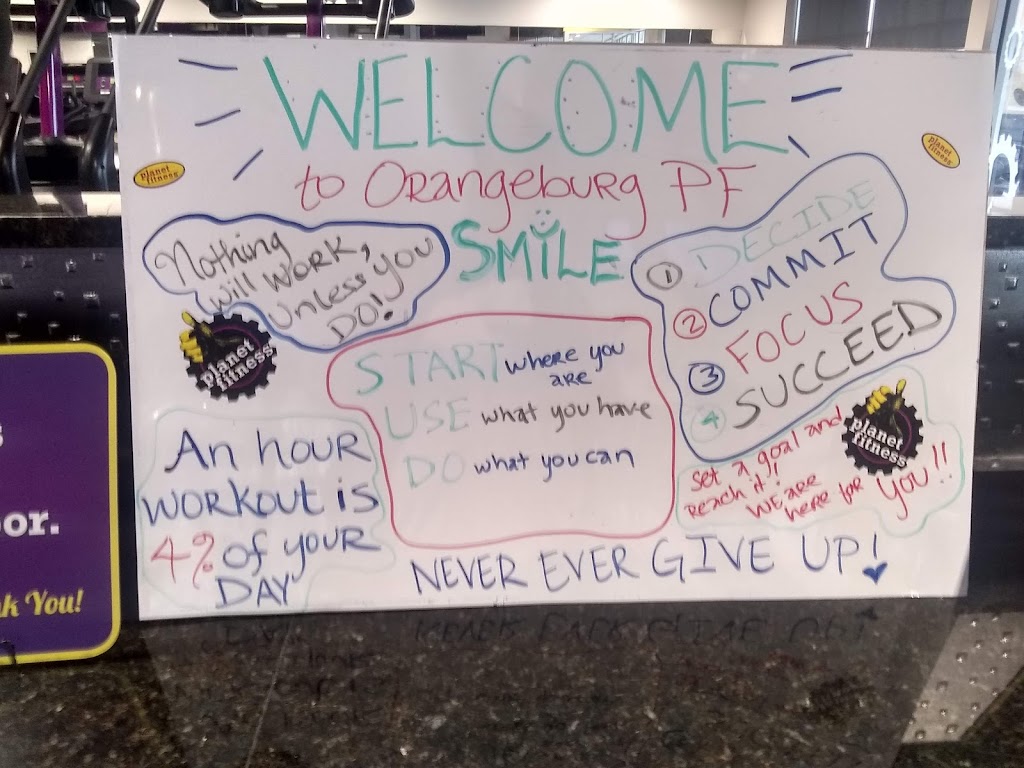 WELCOME
to Orangeburg PF
SMILE
planet fitness
planet fitness
Nothing
will work,
unless you
DO!
planet
fitness
START where you are
USE what you have
DO what you can
1 DECIDE
2 COMMIT
3 FOCUS
4 SUCCEED
planet
fitness
An hour
workout is
4% of your
DAY
set a goal and
reach it!!
we are
here for you!!
NEVER EVER GIVE UP!
or.
k You!